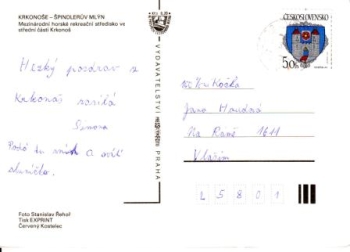 KRKONOŠE – ŠPINDLERŮV MLÝN
Mezinárodní horské rekreační středisko ve
střední části Krkonoš
Hezký pozdrav z
Krkonoš posílá
Simona
a svítí
sluníčko.
Foto Stanislav Řehoř
Tisk EXPRINT
Červený Kostelec
VYDAVATELSTVÍ
PRAHA
ČESKOSLOVENSKO
5,00
Kočka
Jana
Na Rané 1611
Vlašim
25801